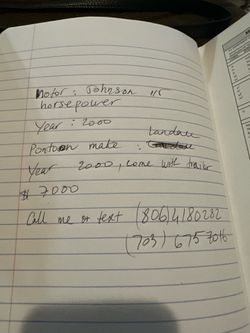 Motor : Johnson 115
horsepower
Year : 2000
Pontoon make : Landau
Year 2000, come with trailer
$ 7000
Call me or text (806) 4180282
(703) 675 7016